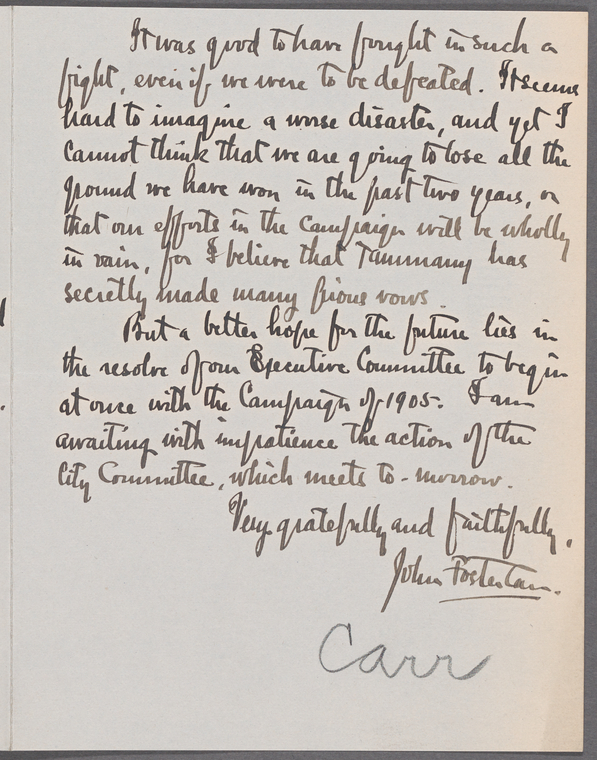 It was good to have fought in such a
fight, even if we were to be defeated. It seems
hard to imagine a worse disaster, and yet I
cannot think that we are going to lose all the
ground we have won in the past two years, or
that our efforts in the campaign will be wholly
in vain, for I believe that Tammany has
secretly made many pious vows.
But a better hope for the future lies in
the resolve of our Executive Committee to begin
at once with the Campaign of 1905. I am
awaiting with impatience the action of the
City Committee, which meets to-morrow.
Very gratefully and faithfully,
John Foster Carr.
Carr